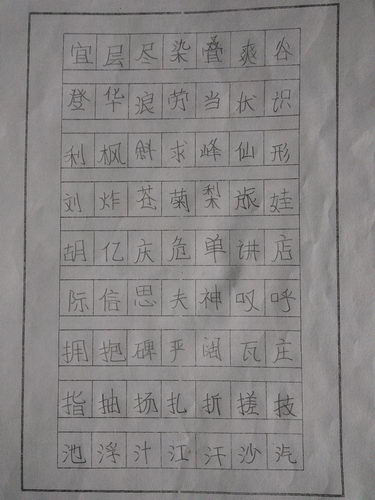 宜层尽染叠爽谷
登华浪劳当状识
利枫斜求峰仙形
刘炸苍菊梨旅娃
胡亿庆危单讲店
际信思夫神叹呼
拥抱碑严阔瓦庄
指抽扬扎折搓技
池浮汁江汗沙汽